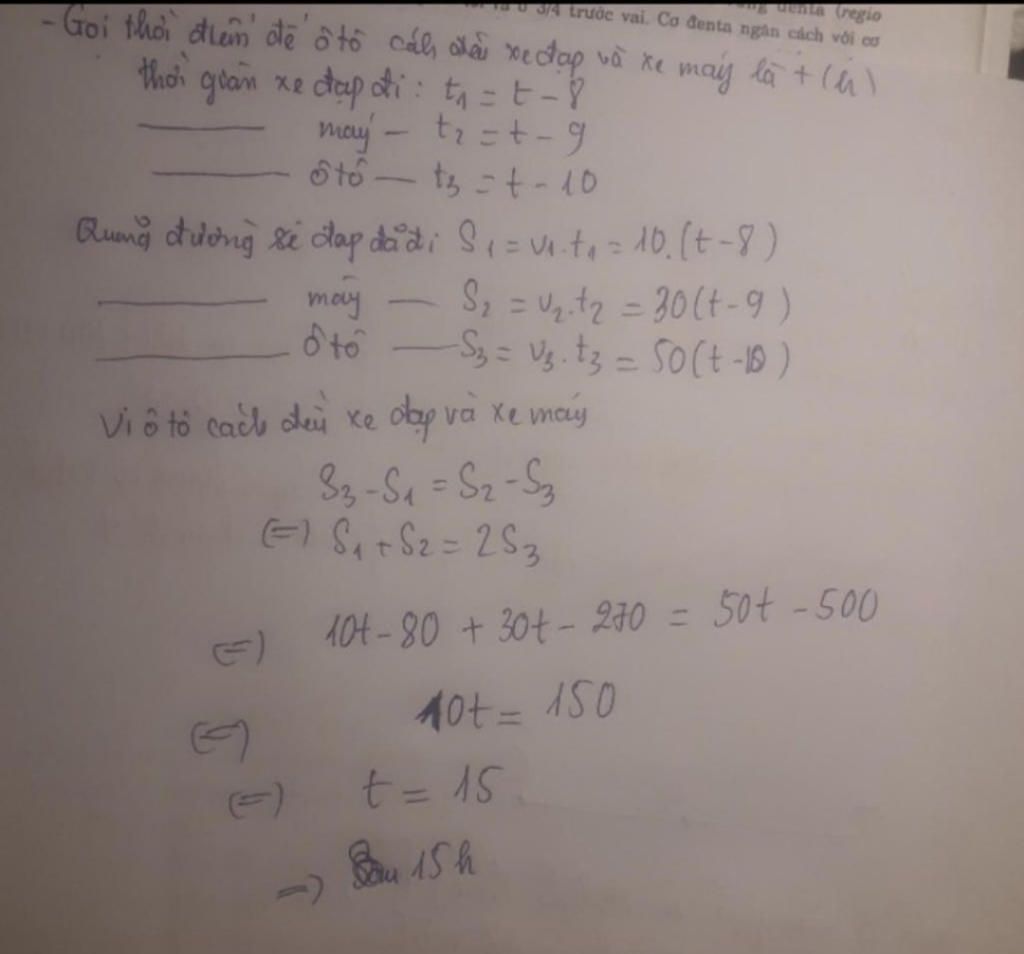 denta (regio
3/4 trước vai. Cơ đenta ngăn cách với cơ
- Gọi thời điểm để ôtô cách đều xe đạp và xe máy là t (h)
thời gian xe đạp đi : t₁ = t - 8
——— máy — t₂ = t - 9
——— ôtô — t₃ = t - 10
Quãng đường xe đạp đã đi S₁ = v₁.t₁ = 10.(t-8)
——— máy — S₂ = v₂.t₂ = 30(t-9)
——— ôtô — S₃ = v₃.t₃ = 50(t-10)
Vì ôtô cách đều xe đạp và xe máy
S₃ - S₁ = S₂ - S₃
(=) S₁ + S₂ = 2S₃
(=) 10t - 80 + 30t - 270 = 50t - 500
(=) 10t = 150
(=) t = 15
=) Sau 15h